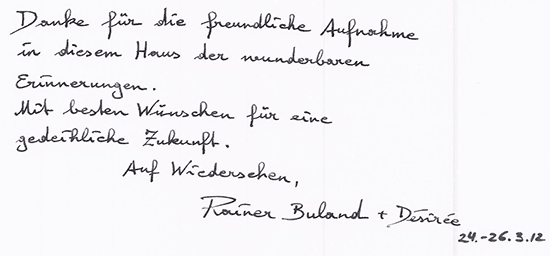 Danke für die freundliche Aufnahme
in diesem Haus der wunderbaren
Erinnerungen.
Mit besten Wünschen für eine
gedeihliche Zukunft.
Auf Wiedersehen,
Rainer Buland + Désirée
24.-26.3.12